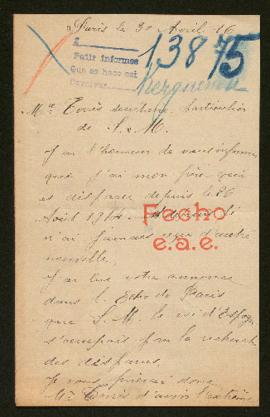 Paris le 30 Avril 16
13875
Pedir informes
Que se hace así
Mr Torrès secrétaire particulier
de S. M.
J'ai l'honneur de vous informer
que j'ai mon frère qui
est disparu depuis le
Août 1914.
n'ai jamais eu d'autre
nouvelle.
J'ai lu votre annonce
dans l'Echo de Paris
que S. M. le roi d'Espagne
s'occupait pour la recherche
des disparus.
Je vous prierai donc
Mr Torrès d'avoir l'extrême
Fecho
e.a.e.